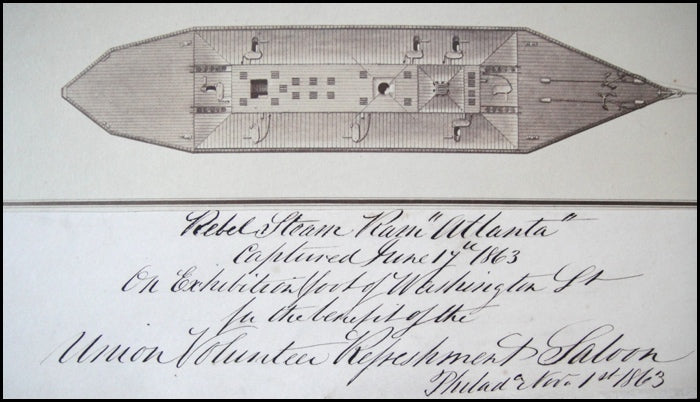 Rebel Steam Ram "Atlanta"
Captured June 17th 1863
On Exhibition foot of Washington St
for the benefit of the
Union Volunteer Refreshment Saloon
Philada Nov. 1st 1863